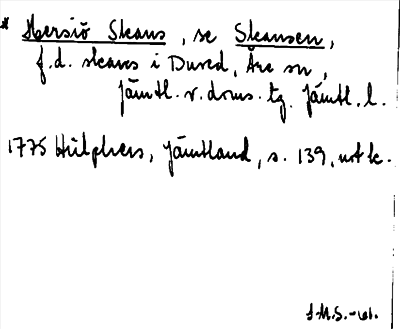 * Mersiö Skans, se Skansen,
f.d. skans i Duved, Åre sn,
Jämtl. v. doms. tg. Jämtl. l.
1775 Hülphers, Jämtland, s. 139, utk.
J.M.S.-